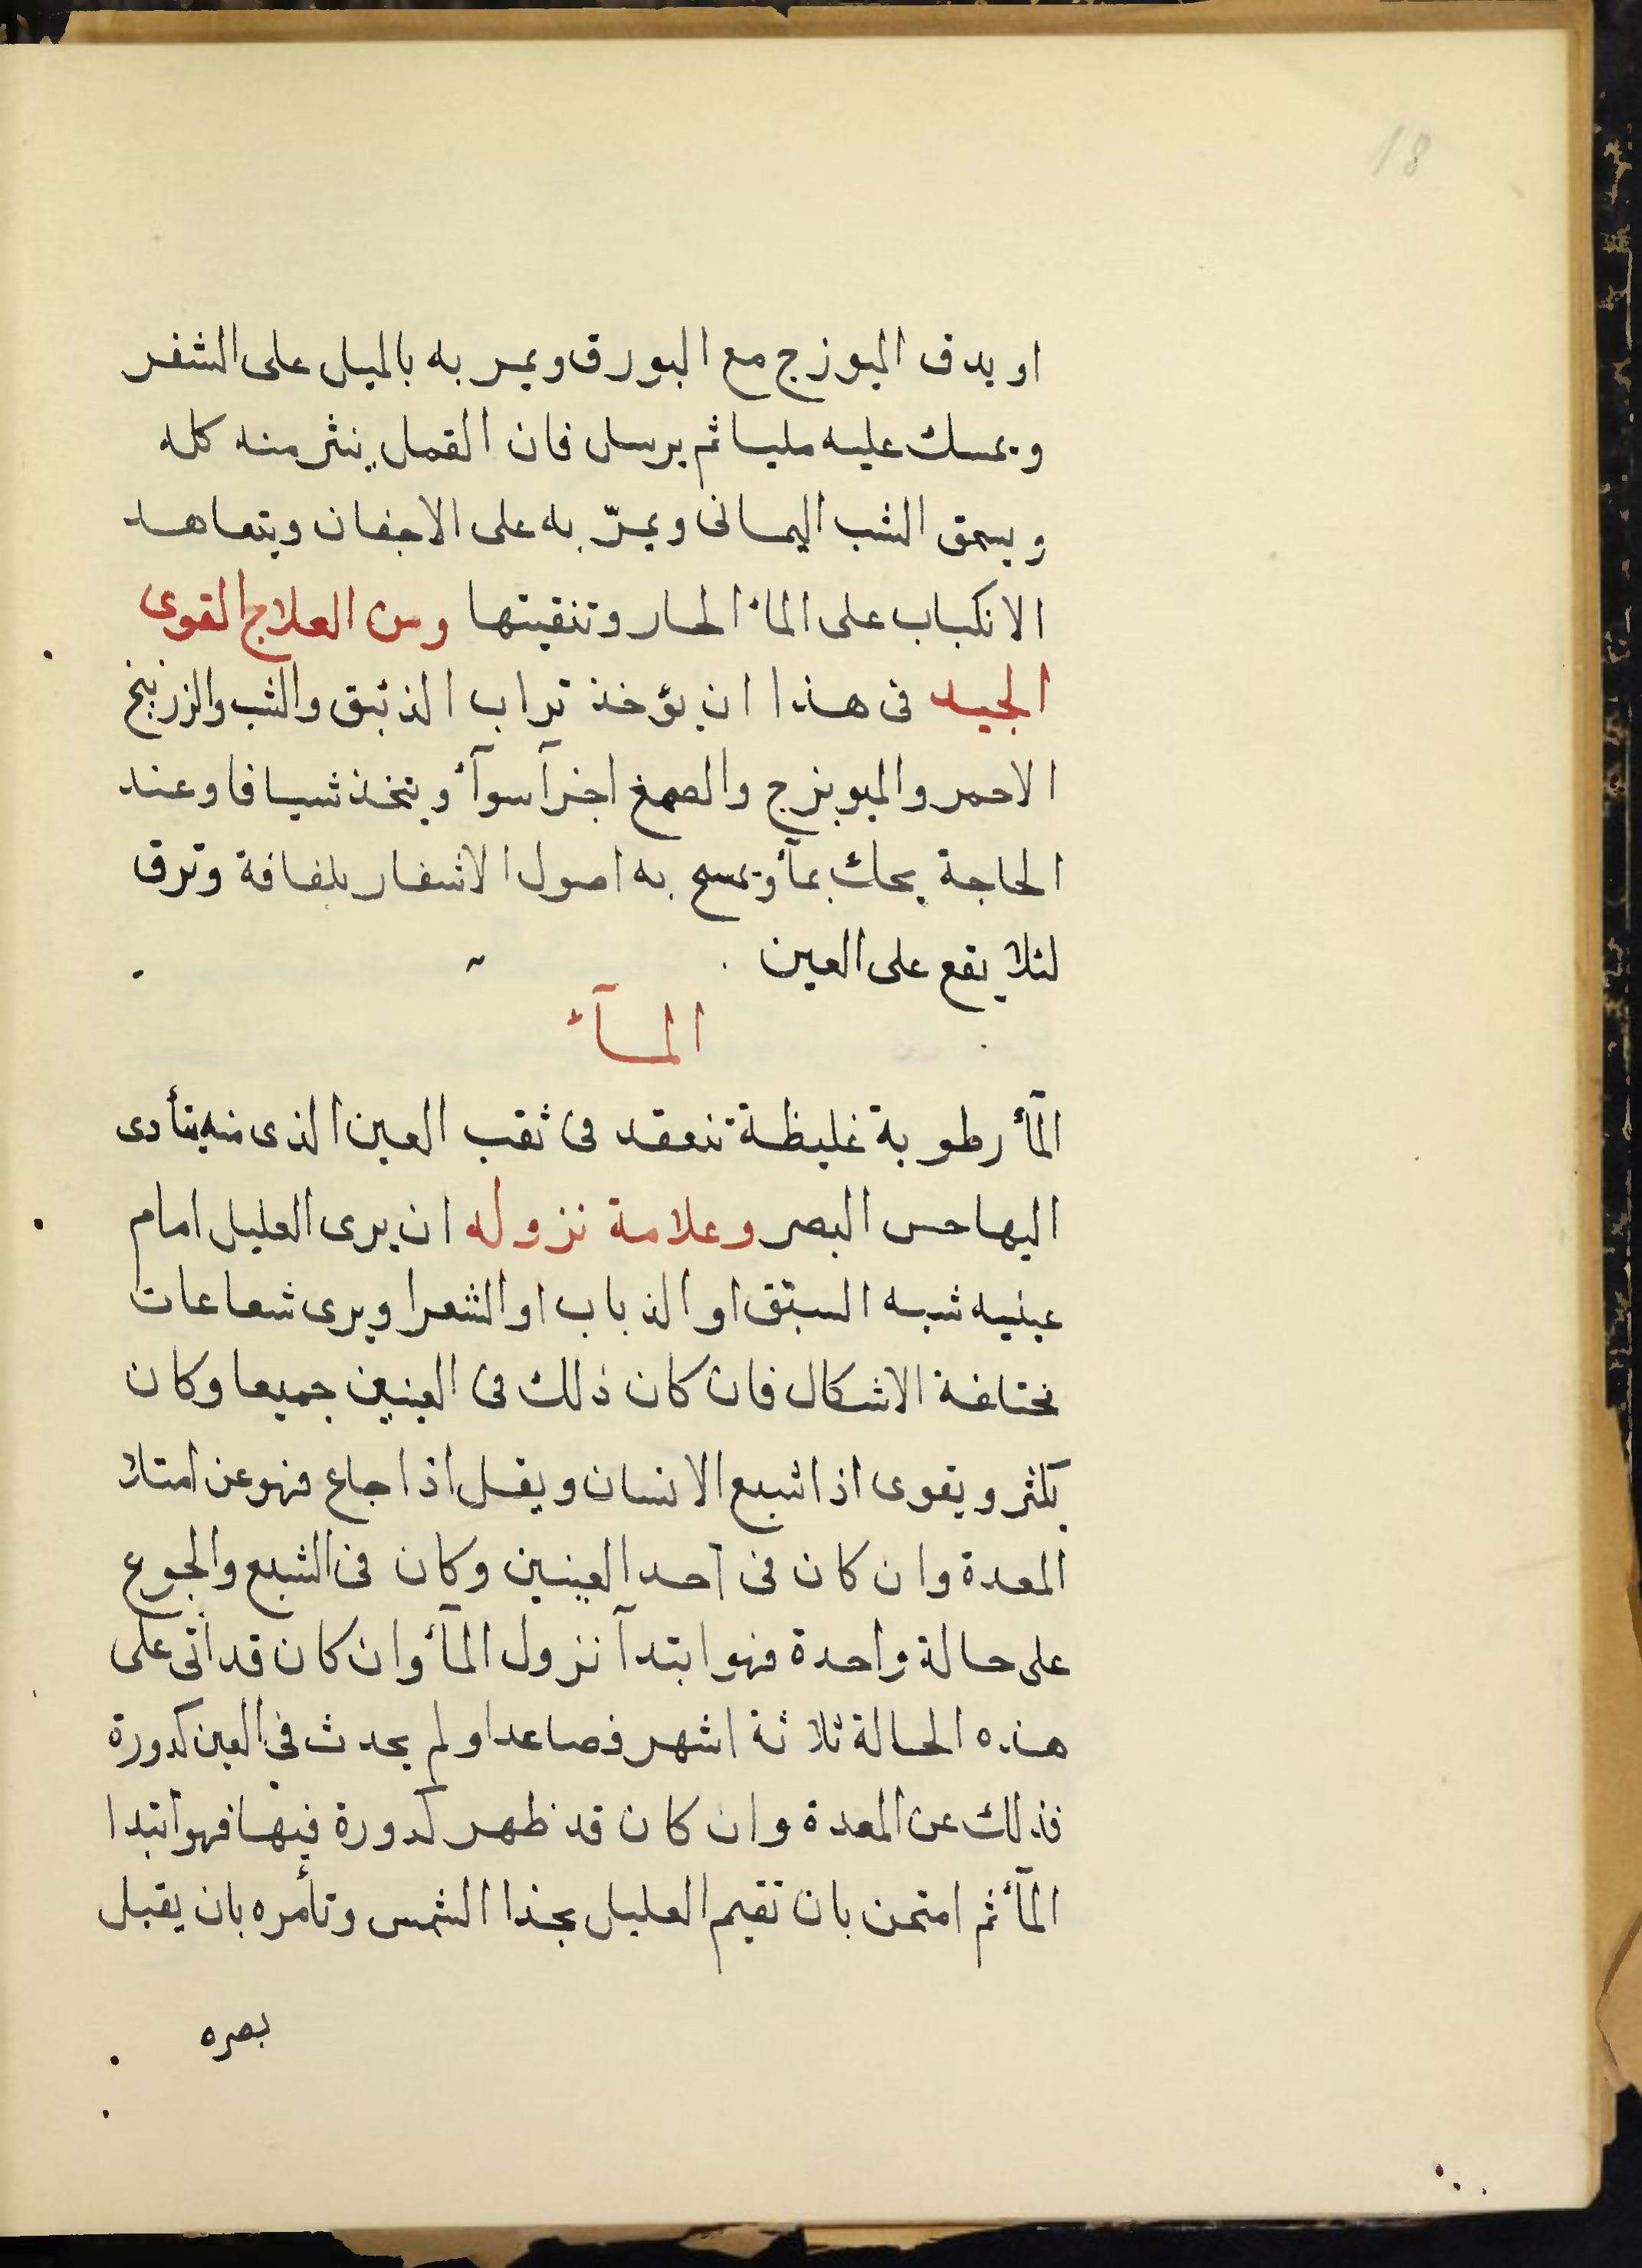 18
او يدق الميوزج مع البورق ويمر به بالميل على الشفر
ويمسك عليه مليا ثم يرسل فان القمل ينثر منه كله
ويسحق الشب اليمانى ويمرّ به على الاجفان ويتعاهد
الانكباب على المأ الحار وتنقيتها ومن العلاج القوى
الجيد فى هذا ان يؤخذ تراب الذئبق والشب والزرنيخ
الاحمر والميويزج والصمغ اجزآ سوآء ويتخذ شيافا وعند
الحاجة يحك بمآء ويمسح به اصول الاشفار بلفافة وترق
لئلا يقع على العين
المـآء
المآء رطوبة غليظة تنعقد فى ثقب العين الذى منه يتأدى
اليها حس البصر وعلامة نزوله ان يرى العليل امام
عينيه شبه السبتق او الذباب او الشعرا ويرى شعاعات
مختلفة الاشكال فان كان ذلك فى العينين جميعا وكان
يكثر ويقوى اذا شبع الانسان ويقل اذا جاع فهو عن امتلا
المعدة وان كان فى احد العينين وكان فى الشبع والجوع
على حالة واحدة فهو ابتدآ نزول المآء وان كان قد أتى على
هذه الحالة ثلاثة اشهر فصاعدا ولم يحدث فى العين كدورة
فذلك عن المعدة وان كان قد ظهر كدورة فيها فهو ابتدا
المآء ثم امتحن بان تقيم العليل بحذا الشمس وتأمره بان يقبل
بصره